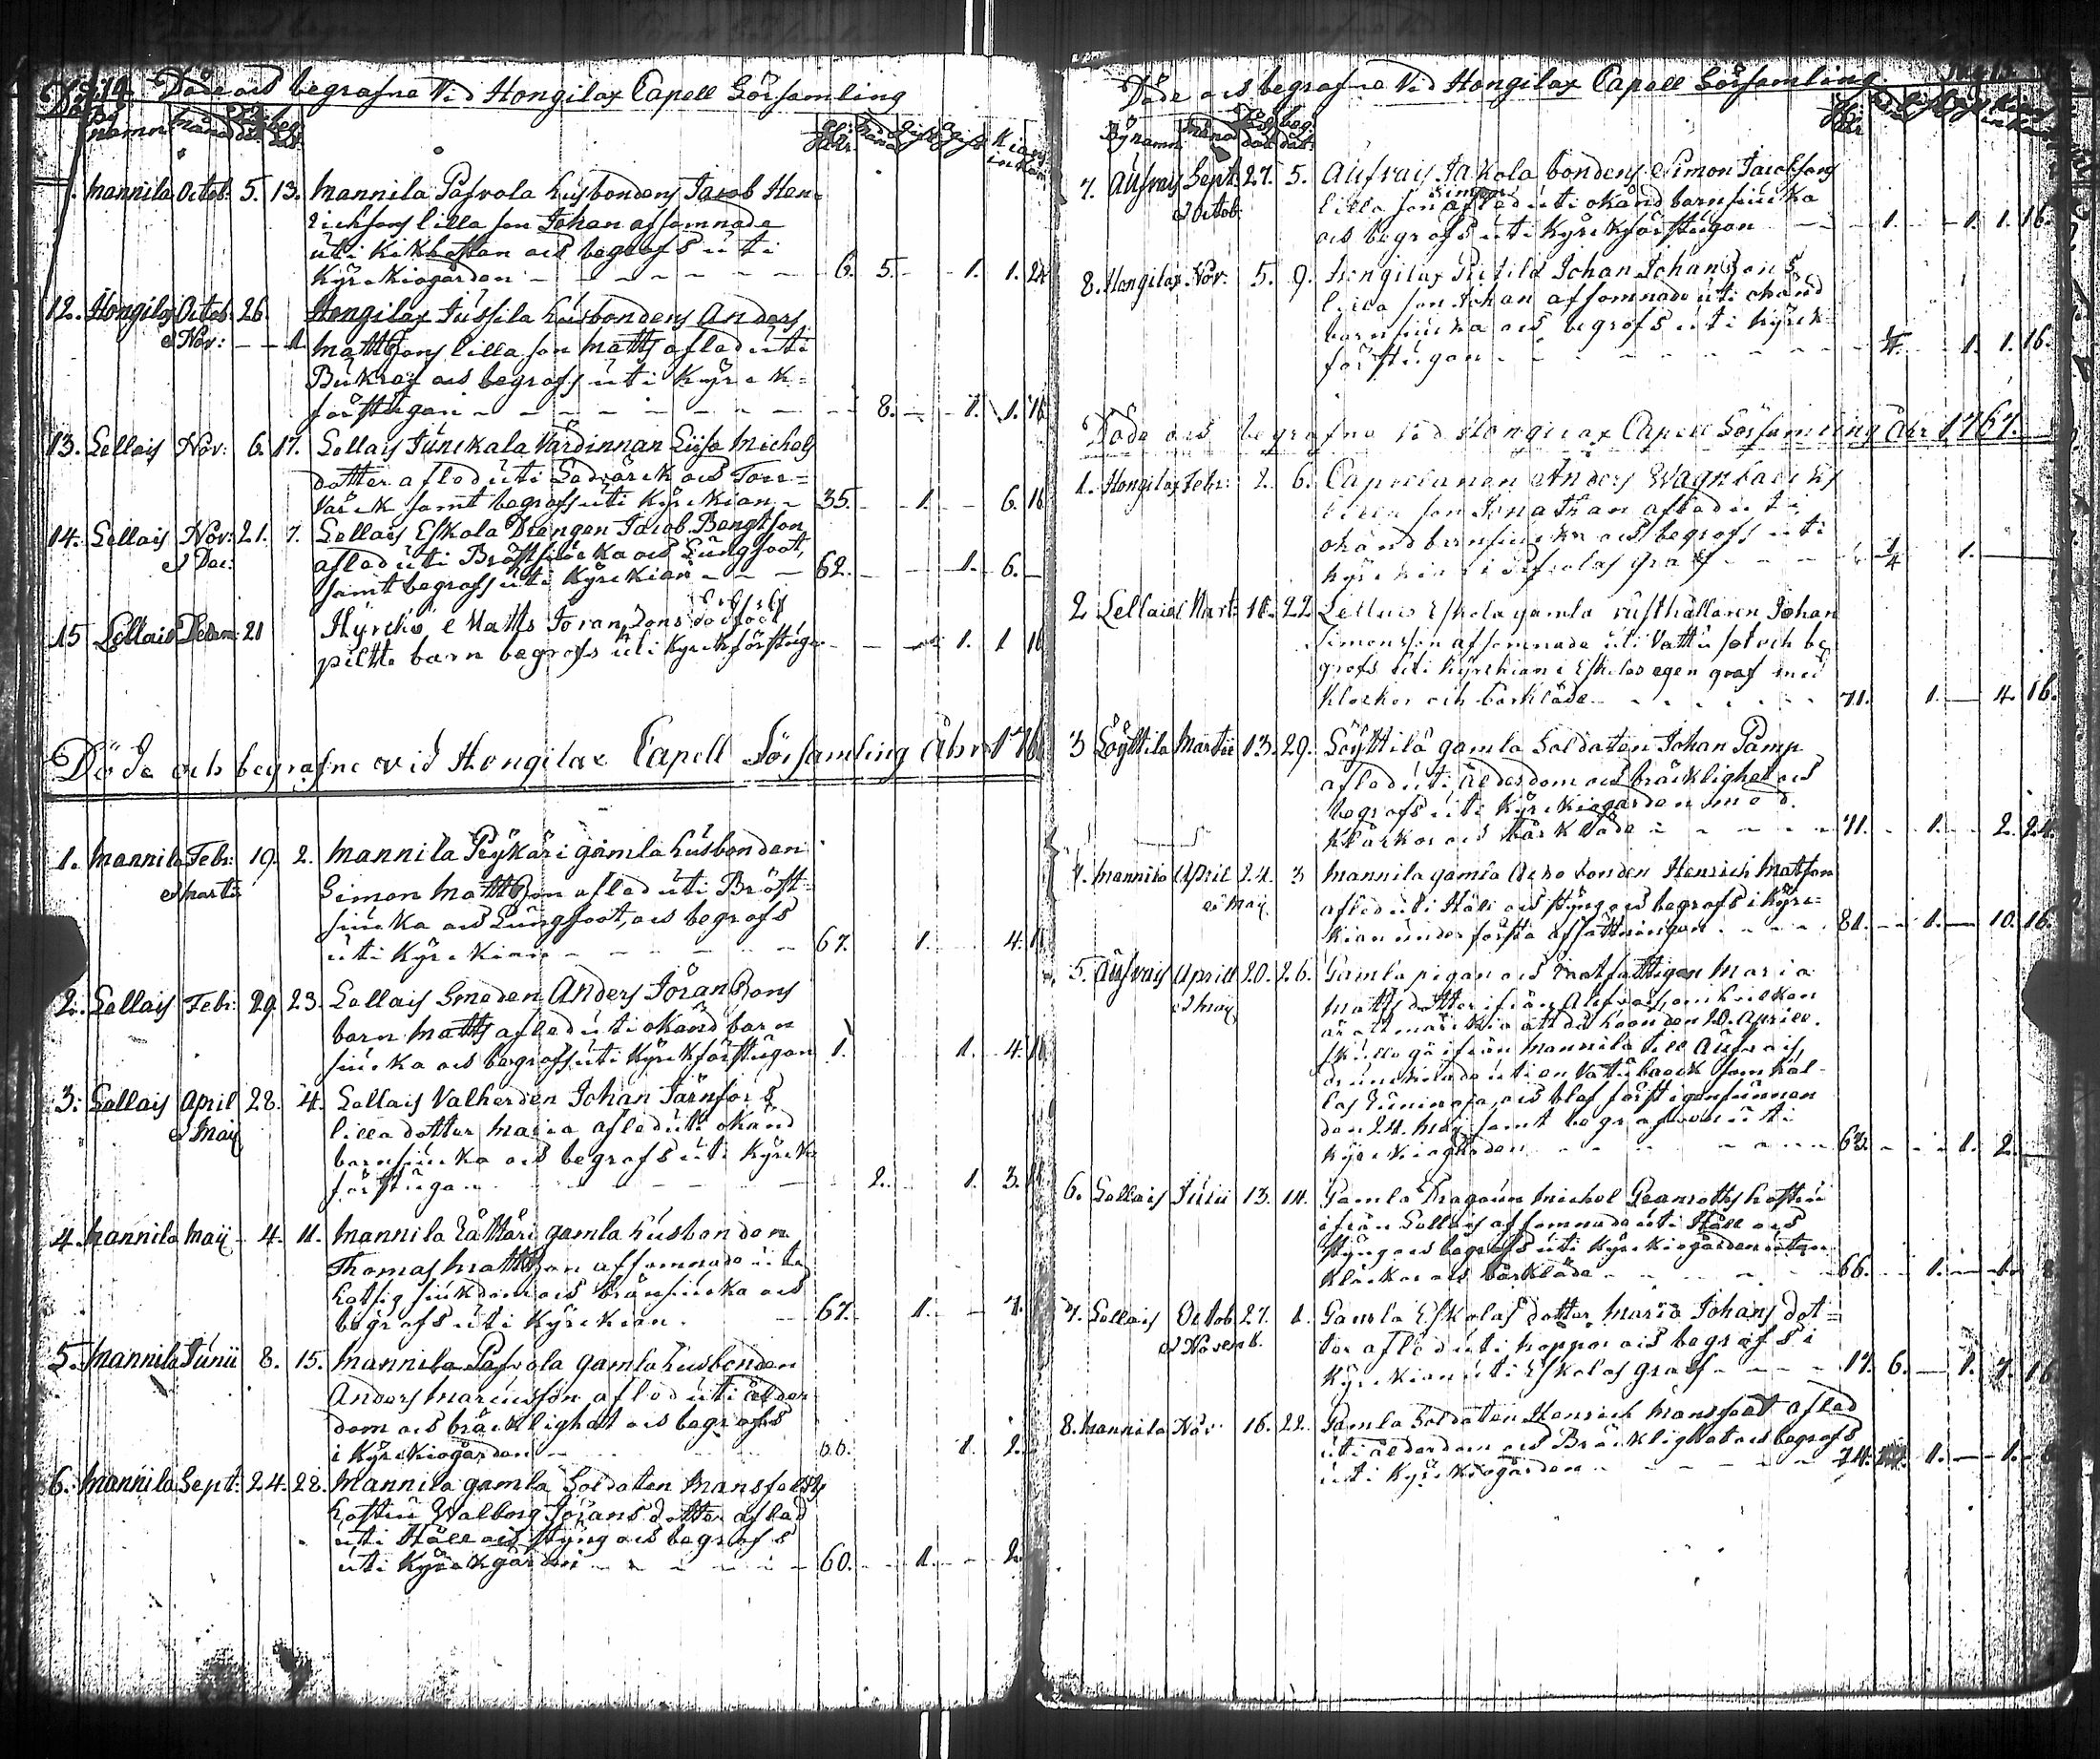 Döde och begrafne Vid Hongilax Capell Församling
By namn månad död dat. beg. dat.
Mannila Octob: 5. 13. Mannila Pafvola husbondens Jacob Hen=
richsons lilla son Johan afsomnade
uti Kikhostan och begrofs uti
Kyrckiogården 6. 5. 1. 1. 24
12. Hongilax Octob: 26. Hongilax Jussila husbondens Anders
et Nov: 1. Mattssons lilla son Matts afled uti
Bukref och begrofs uti Kyrck=
förstugan 8. 1. 1. 16
13. Lellais Nov: 6. 17. Lellais Junckala Värdinnan Lisa Michels
dotter afled uti
Värck samt begrofs uti Kyrckian 35. 1. 6. 16
14. Lellais Nov: 21. 7. Lellais Eskola Drengen Jacob Bengtson
et Dec: afled uti Bröstsiucka och Lungsoot,
samt begrofs uti Kyrckian 62. 1. 6.
15 Lellais Decem: 21 Hyrckö Matts Jöranssons dödfödt
pilte barn begrofs uti Kyrckförstuga 1. 1 16
Döde och begrafne vid Hongilax Capell Församling Åhr 176
1. Mannila Febr: 19. 2. Mannila Prykäri gamla husbonden
et Marti Simon Mattsson afled uti Bröst=
siucka och Lungsoot, och begrofs
uti Kyrckian 67. 1. 4.
2. Lellais Febr: 29. 23. Lellais Smeden Anders Jöranssons
barn Matts afled uti okänd barn
siucka och begrofs uti Kyrckförstugan 1. 1. 4.
3. Lellais April 28. 4. Lellais Valherden Johan Järnfors
et Maij lilla dotter Maria afled uti okänd
barnsiucka och begrofs uti Kyrck
förstugan 2. 1. 3.
4. Mannila Maij 4. 11. Mannila Rättäri gamla husbonden
Thomas Mattsson afsomnade uti
hetsig siukdom och brånsiucka och
begrofs uti Kyrckian. 67. 1. 7.
5. Mannila Junii 8. 15. Mannila Pafvola gamla husbonden
Anders Marcusson afled uti ålder
dom och bräcklighet och begrofs
i Kyrckiogården 1. 2.
6. Mannila Sept: 24. 28. Mannila gamla Soldaten Mansfelts
hustru Walborg Jörans dotter afled
uti Håll och styng och begrofs
uti Kyrckgården 60. 1. 2.
Döde och begrafne Vid Hongilax Capell Församling
By namn månad död dat. beg. dat.
7. Aufvais Sept: 27. 5. Aufvais Jakola bondens Simon Jacobsons
et Octob: lilla son Simon afled uti okänd barnsiucka
och begrofs uti Kyrckförstugan 1. 1. 1. 16.
8. Hongilax Nov: 5. 9. Hongilax Johan Johanssons
lilla son Johan afsomnade uti okänd
barnsiucka och begrofs uti Kyrck
förstugan 1. 1. 16.
Döde och begrafne vid Hongilax Capell Församling Åhr 1767.
1. Hongilax Febr: 2. 6. Capellanen Anders Wagnbäcks
lilla son Jonathan afled uti
okänd barnsiucka och begrofs uti
Kyrckian i Pafvolas graf 1/4 1.
2 Lellais Mart: 11. 22 Lellais Eskola gamla rusthållaren Johan
Simonsson afsomnade uti Vattusot och be
grofs uti Kyrckian i Eskolas egen graf med
Klockor och bårkläde 71. 1. 4. 16.
3 Löyttilä Martii 13. 29. Löyttilä gamla Soldaten Johan Pamp
afled uti ålderdom och bräcklighet och
begrofs uti Kyrckiogården med
Klåckor och bårkläde 71. 1. 2. 24.
4. Mannila April 24. 3 Mannila gamla bonden Henrich Matsson
et Maij. afled uti Håll och styng och begrofs i Kyrc=
kian under första afsättningen 81. 1. 10. 16.
5. Aufvais Aprill 20. 26. Gamla pigan och rootfattigen Maria
et Maij Matts dotter ifrån Aufvais, om hvilken
är att märckia att då hoon den 20. Aprill.
skulle gå ifrån Mannila till Aufvais,
drunknade uti en Vattubäck som kal-
las och blef först igenfunnen
den 24. Maij samt begrafven uti
Kyrckiogården 1. 2.
6. Lellais Junii 13. 14. Gamla Dragoun Michel Granroths hustru
ifrån Lellais afsomnade uti Håll och
styng och begrofs uti Kyrckiogården utan
klåckor och bårkläde 66. 1.
7. Lellais Octob 27. 1. Gamla Eskolas dotter Maria Johans dot=
et Novemb. ter afled uti koppor och begrofs i
Kyrckian uti Eskolas graf 17. 6. 1. 7. 16
8. Mannila Nov: 16. 22. Gamla Soldaten Henrich Mansfelt afled
uti ålderdom och Bräcklighet och begrofs
uti Kyrckiogården 74. 1. 1.